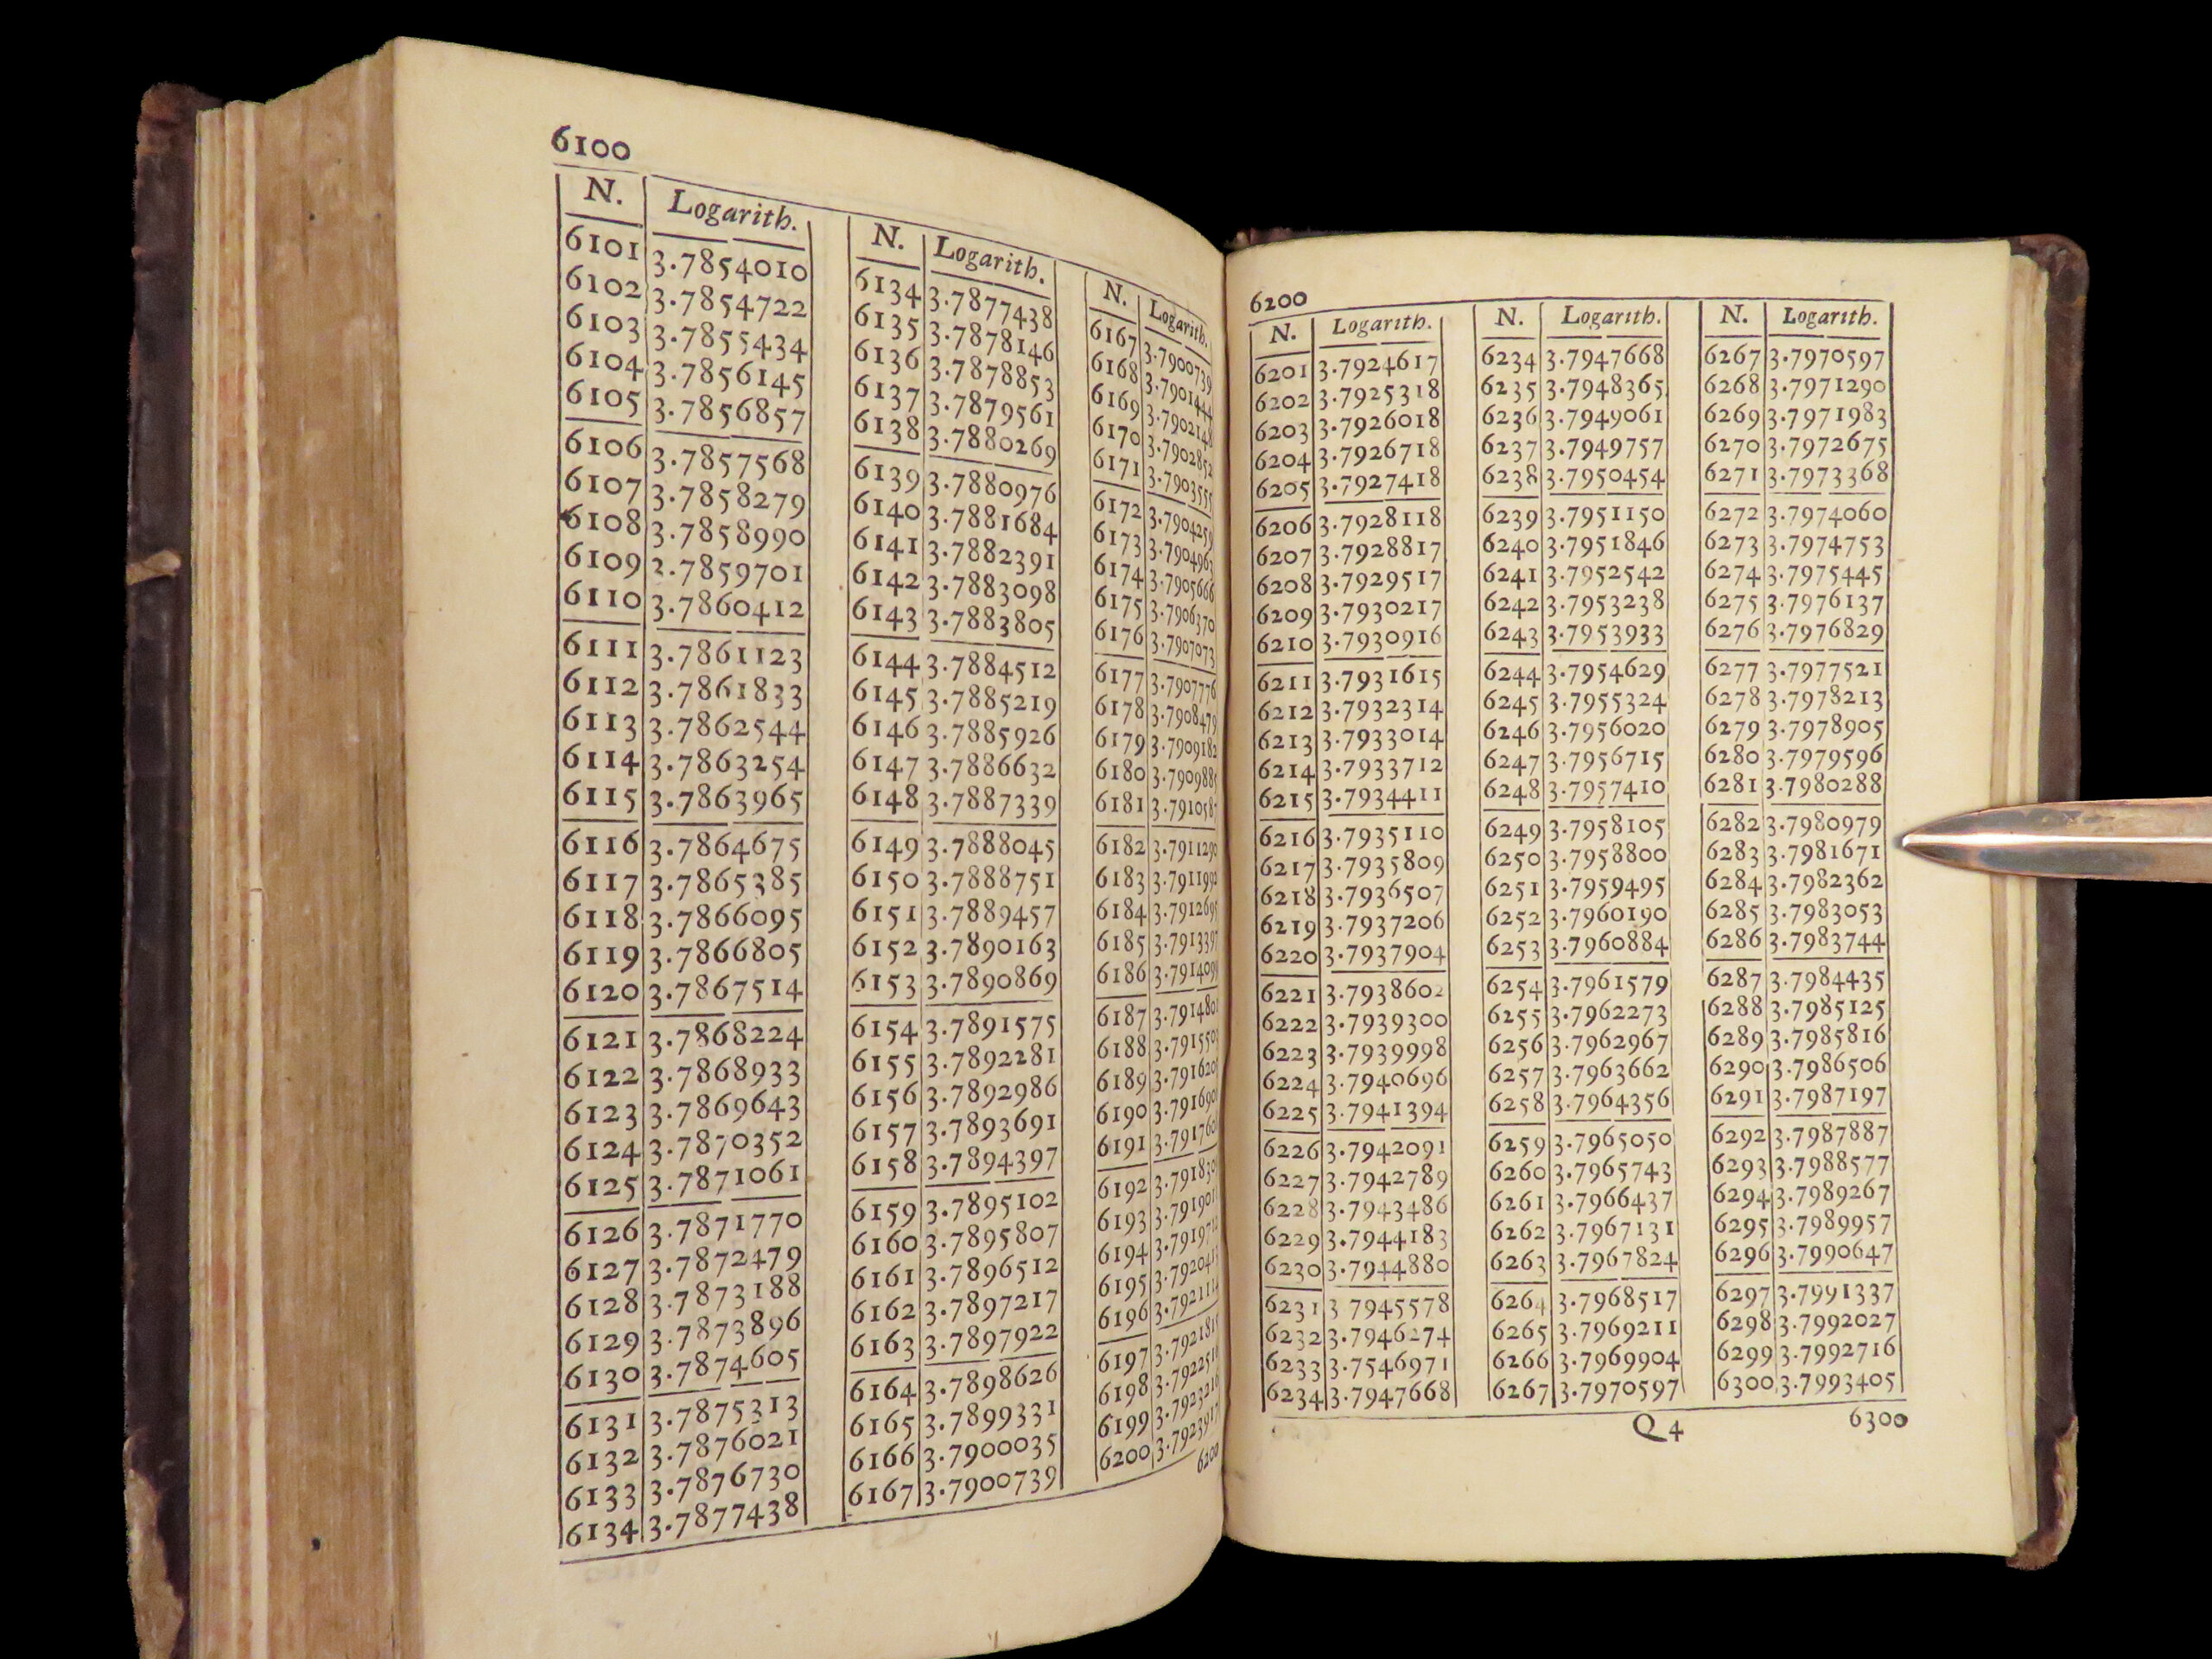 6100
N. Logarith.
6101 3.7854010
6102 3.7854722
6103 3.7855434
6104 3.7856145
6105 3.7856857
6106 3.7857568
6107 3.7858279
6108 3.7858990
6109 3.7859701
6110 3.7860412
6111 3.7861123
6112 3.7861833
6113 3.7862544
6114 3.7863254
6115 3.7863965
6116 3.7864675
6117 3.7865385
6118 3.7866095
6119 3.7866805
6120 3.7867514
6121 3.7868224
6122 3.7868933
6123 3.7869643
6124 3.7870352
6125 3.7871061
6126 3.7871770
6127 3.7872479
6128 3.7873188
6129 3.7873896
6130 3.7874605
6131 3.7875313
6132 3.7876021
6133 3.7876730
6134 3.7877438
N. Logarith.
6134 3.7877438
6135 3.7878146
6136 3.7878853
6137 3.7879561
6138 3.7880269
6139 3.7880976
6140 3.7881684
6141 3.7882391
6142 3.7883098
6143 3.7883805
6144 3.7884512
6145 3.7885219
6146 3.7885926
6147 3.7886632
6148 3.7887339
6149 3.7888045
6150 3.7888751
6151 3.7889457
6152 3.7890163
6153 3.7890869
6154 3.7891575
6155 3.7892281
6156 3.7892986
6157 3.7893691
6158 3.7894397
6159 3.7895102
6160 3.7895807
6161 3.7896512
6162 3.7897217
6163 3.7897922
6164 3.7898626
6165 3.7899331
6166 3.7900035
6167 3.7900739
N. Logarith.
6167 3.7900739
6168 3.7901444
6169 3.7902148
6170 3.7902852
6171 3.7903555
6172 3.7904259
6173 3.7904963
6174 3.7905666
6175 3.7906370
6176 3.7907073
6177 3.7907776
6178 3.7908479
6179 3.7909182
6180 3.7909885
6181 3.7910587
6182 3.7911290
6183 3.7911992
6184 3.7912695
6185 3.7913397
6186 3.7914099
6187 3.7914801
6188 3.7915503
6189
6190
6191
6192
6193
6194 3.7919712
6195 3.7920413
6196 3.7921114
6197 3.7921815
6198 3.7922516
6199 3.7923216
6200 3.7923917
6200
6200
N. Logarith.
6201 3.7924617
6202 3.7925318
6203 3.7926018
6204 3.7926718
6205 3.7927418
6206 3.7928118
6207 3.7928817
6208 3.7929517
6209 3.7930217
6210 3.7930916
6211 3.7931615
6212 3.7932314
6213 3.7933014
6214 3.7933712
6215 3.7934411
6216 3.7935110
6217 3.7935809
6218 3.7936507
6219 3.7937206
6220 3.7937904
6221 3.7938602
6222 3.7939300
6223 3.7939998
6224 3.7940696
6225 3.7941394
6226 3.7942091
6227 3.7942789
6228 3.7943486
6229 3.7944183
6230 3.7944880
6231 3 7945578
6232 3.7946274
6233 3.7546971
6234 3.7947668
N. Logarith.
6234 3.7947668
6235 3.7948365
6236 3.7949061
6237 3.7949757
6238 3.7950454
6239 3.7951150
6240 3.7951846
6241 3.7952542
6242 3.7953238
6243 3.7953933
6244 3.7954629
6245 3.7955324
6246 3.7956020
6247 3.7956715
6248 3.7957410
6249 3.7958105
6250 3.7958800
6251 3.7959495
6252 3.7960190
6253 3.7960884
6254 3.7961579
6255 3.7962273
6256 3.7962967
6257 3.7963662
6258 3.7964356
6259 3.7965050
6260 3.7965743
6261 3.7966437
6262 3.7967131
6263 3.7967824
6264 3.7968517
6265 3.7969211
6266 3.7969904
6267 3.7970597
N. Logarith.
6267 3.7970597
6268 3.7971290
6269 3.7971983
6270 3.7972675
6271 3.7973368
6272 3.7974060
6273 3.7974753
6274 3.7975445
6275 3.7976137
6276 3.7976829
6277 3.7977521
6278 3.7978213
6279 3.7978905
6280 3.7979596
6281 3.7980288
6282 3.7980979
6283 3.7981671
6284 3.7982362
6285 3.7983053
6286 3.7983744
6287 3.7984435
6288 3.7985125
6289 3.7985816
6290 3.7986506
6291 3.7987197
6292 3.7987887
6293 3.7988577
6294 3.7989267
6295 3.7989957
6296 3.7990647
6297 3.7991337
6298 3.7992027
6299 3.7992716
6300 3.7993405
Q 4 6300